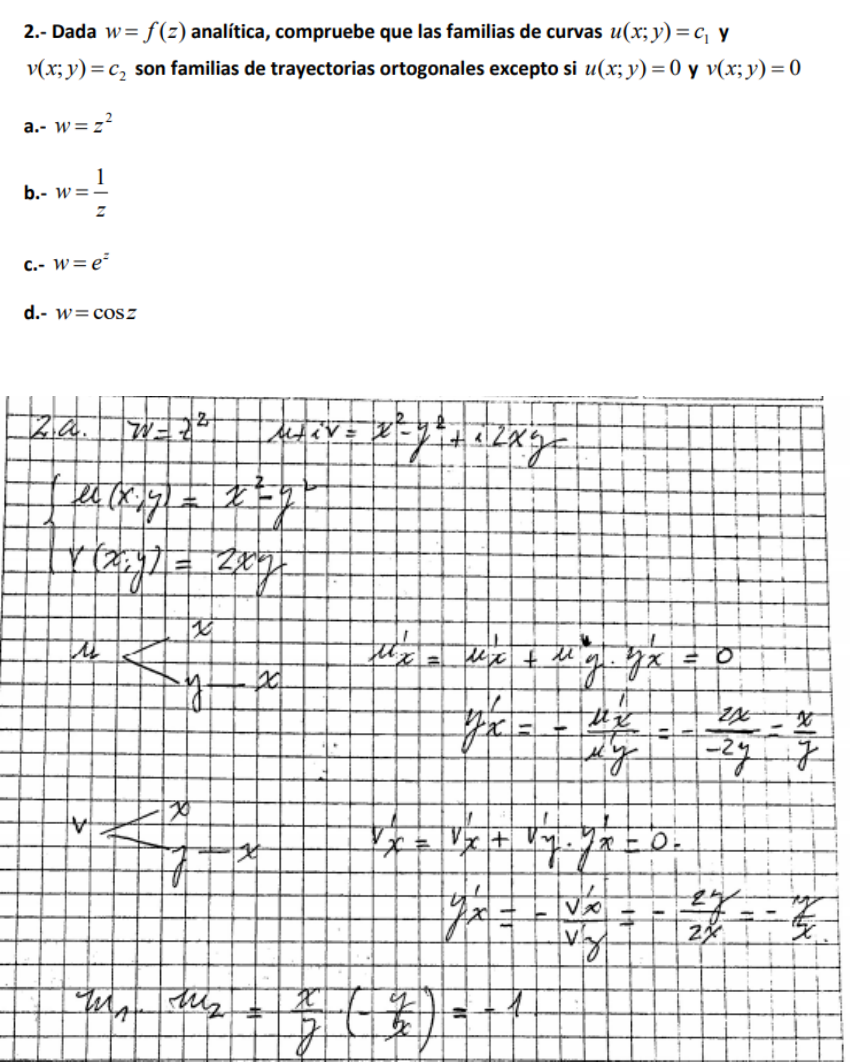 2.- Dada w = f(z) analítica, compruebe que las familias de curvas u(x; y) = c₁ y
v(x; y) = c₂ son familias de trayectorias ortogonales excepto si u(x; y) = 0 y v(x; y) = 0
a.- w = z²
b.- w = 1/z
c.- w = e^z
d.- w = cos z
2.a. w = z² u+iv = x²-y² + i 2xy
u(x;y) = x²-y²
v(x;y) = 2xy
u < x
y — x
u'x = u'x + u'y . y'x = 0
y'x = - u'x/u'y = - 2x/-2y = x/y
v < x
y — x
v'x = v'x + v'y . y'x = 0.
y'x = - v'x/v'y = - 2y/2x = - y/x.
m₁ . m₂ = x/y (- y/x) = -1